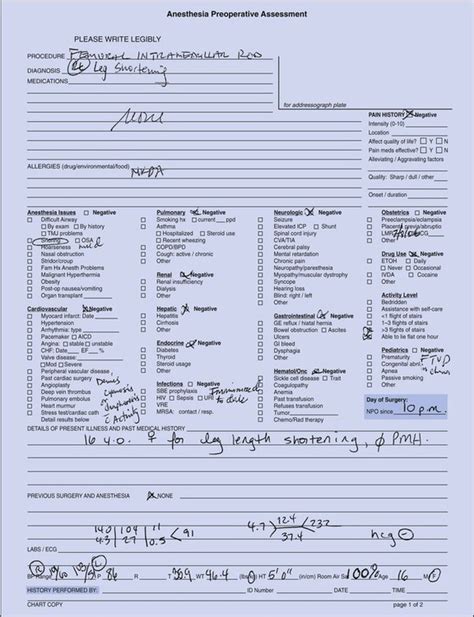 Anesthesia Preoperative Assessment
PLEASE WRITE LEGIBLY
PROCEDURE FEMORAL INTRAMEDULLAR ROD
DIAGNOSIS Leg Shortening
MEDICATIONS
None
for addressograph plate
ALLERGIES (drug/environmental/food) NKDA
PAIN HISTORY Negative
Intensity (0-10)
Location
Affect quality of life? Y N
Pain meds effective? Y N
Alleviating / Aggravating factors
Quality: Sharp / dull / other
Onset / duration
Anesthesia Issues Negative
Difficult Airway
By exam By history
TMJ problems
Snoring OSA
Hoarseness mild
Nasal obstruction
Stridor/croup
Fam Hx Anesth Problems
Malignant Hyperthermia
Obesity
Organ transplant
Cardiovascular Negative
Myocard infarct: Date
Hypertension
Arrhythmia: Date
Pacemaker AICD
Angina: stable unstable
CHF: Date EF %
Mod Severe
Peripheral vascular disease
Past cardiac surgery
Angioplasty
Pulmonary embolus
Heart murmur
Stress test/cardiac cath
Detail results below
Denies
Cyanosis
Pulmonary Negative
Smoking hx current ppd
Asthma
Hospitalized Steroid use
Recent wheezing
COPD/BPD
Cough: active / chronic
Other
Renal Negative
Renal insufficiency
Dialysis
Other
Hepatic Negative
Hepatitis
Cirrhosis
Other
Endocrine Negative
Diabetes
Thyroid
Steroid usage
Other
Infections Negative
SBE prophylaxis
HIV Sepsis URI
VRE
MRSA: contact / resp.
Immunized
to date
Neurologic Negative
Seizure
Elevated ICP Shunt
Spinal cord injury
CVA/TIA
Cerebral palsy
Mental retardation
Chronic pain
Neuropathy/paresthesia
Myopathy/muscular dystrophy
Syncope
Hearing loss
Blind: right / left
Other
Gastrointestinal Negative
GE reflux / hiatal hernia
Bowel obstruction Ascites
Ulcer
GI bleed
Dysphagia
Other
Hematol/Onc Negative
Sickle cell disease Trait
Coagulopathy
Anemia
Past transfusion
Refuses transfusion
Tumor
Chemo/Rad therapy
Obstetrics Negative
Preeclampsia/eclampsia
Placenta previa/abruptio
Drug Use Negative
ETOH Daily
Never Occasional
IVDA Cocaine
Other
Activity Level
Bedridden
Assistance with self-care
<1 flight of stairs
1-3 flights of stairs
>3 flights of stairs
Able to lie flat one hour
Pediatrics Negative
Prematurity
Congenital abn
Apnea
Passive smoking
Other
Day of Surgery:
NPO since 10 p.m.
DETAILS OF PRESENT ILLNESS AND PAST MEDICAL HISTORY
16 y.o. ♀ for leg length shortening, ∅ PMH.
PREVIOUS SURGERY AND ANESTHESIA NONE
140 104 11 91
4.3 27 0.5
4.7 12.4 232
37.4
hcg ⊖
LABS / ECG
BP Range P 86 R T WT 46.4 (lbs/kg) HT 5'0" (in/cm) Room Air Sat 100% Age 16 M F
HISTORY PERFORMED BY: ID # DATE TIME
CHART COPY page 1 of 2